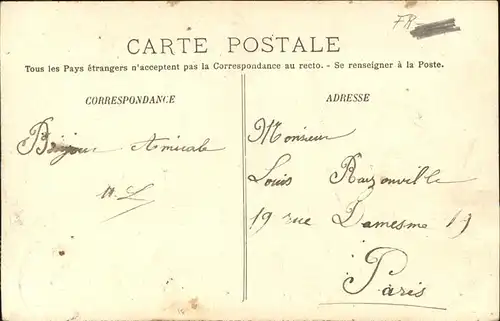 FR
CARTE POSTALE
Tous les Pays étrangers n'acceptent pas la Correspondance au recto. - Se renseigner à la Poste.
CORRESPONDANCE
Bonjour Amicale
ADRESSE
Monsieur
Louis Razonville
19 rue Damesme 19
Paris